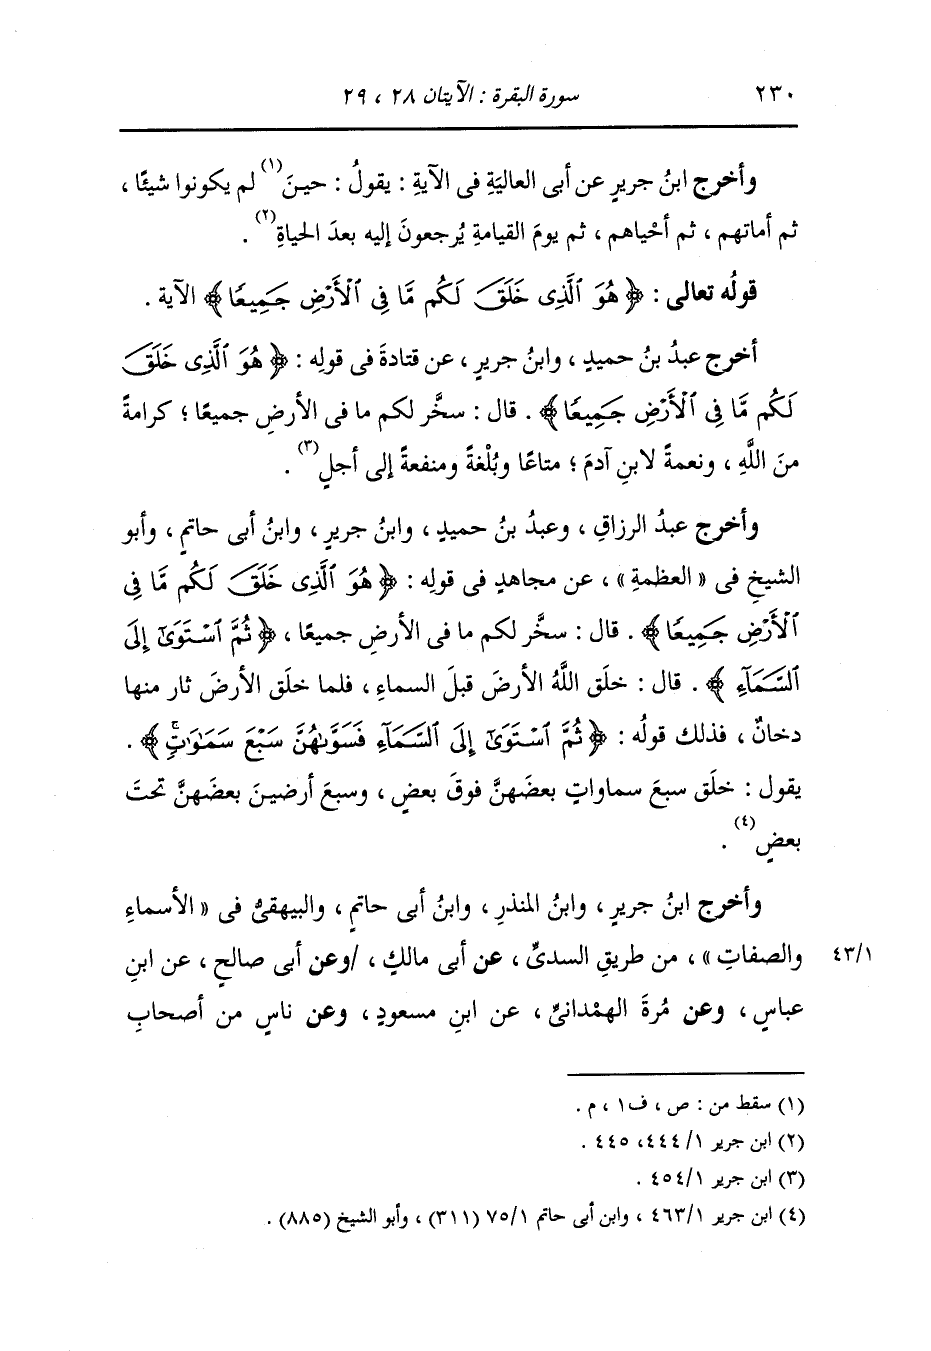 ٢٣٠ سورة البقرة : الآيتان ٢٨ ، ٢٩
وأخرج ابنُ جريرٍ عن أبى العاليَةِ فى الآيةِ : يقولُ : حينَ(١) لم يكونوا شيئًا ،
ثم أماتهم ، ثم أحْياهم ، ثم يومَ القيامةِ يُرجعونَ إليه بعدَ الحياةِ(٢) .
قولُه تعالى : ﴿ هُوَ ٱلَّذِى خَلَقَ لَكُم مَّا فِى ٱلْأَرْضِ جَمِيعًا ﴾ الآية .
أخرج عبدُ بنُ حميدٍ ، وابنُ جريرٍ ، عن قتادةَ فى قولِه : ﴿ هُوَ ٱلَّذِى خَلَقَ
لَكُم مَّا فِى ٱلْأَرْضِ جَمِيعًا ﴾ . قال : سخَّر لكم ما فى الأرضِ جميعًا ؛ كرامةً
منَ اللَّهِ ، ونعمةً لابنِ آدمَ ؛ متاعًا وبُلْغةً ومنفعةً إلى أجلٍ(٣) .
وأخرج عبدُ الرزاقِ ، وعبدُ بنُ حميدٍ ، وابنُ جريرٍ ، وابنُ أبى حاتمٍ ، وأبو
الشيخِ فى « العظمةِ » ، عن مجاهدٍ فى قولِه : ﴿ هُوَ ٱلَّذِى خَلَقَ لَكُم مَّا فِى
ٱلْأَرْضِ جَمِيعًا ﴾ . قال : سخَّر لكم ما فى الأرضِ جميعًا ، ﴿ ثُمَّ ٱسْتَوَىٰٓ إِلَى
ٱلسَّمَآءِ ﴾ . قال : خلَق اللَّهُ الأرضَ قبلَ السماءِ ، فلما خلَق الأرضَ ثار منها
دخانٌ ، فذلك قولُه : ﴿ ثُمَّ ٱسْتَوَىٰٓ إِلَى ٱلسَّمَآءِ فَسَوَّىٰهُنَّ سَبْعَ سَمَٰوَٰتٍۚ ﴾ .
يقول : خلَق سبعَ سماواتٍ بعضَهنَّ فوقَ بعضٍ ، وسبعَ أرضينَ بعضَهنَّ تحتَ
بعضٍ(٤) .
وأخرج ابنُ جريرٍ ، وابنُ المنذرِ ، وابنُ أبى حاتمٍ ، والبيهقىُّ فى « الأسماءِ
والصفاتِ » ، من طريقِ السدىِّ ، عن أبى مالكٍ ، /وعن أبى صالحٍ ، عن ابنِ ٤٣/١
عباسٍ ، وعن مُرةَ الهمْدانىِّ ، عن ابنِ مسعودٍ ، وعن ناسٍ من أصحابِ
(١) سقط من : ص ، ف١ ، م .
(٢) ابن جرير ١/ ٤٤٤، ٤٤٥ .
(٣) ابن جرير ٤٥٤/١ .
(٤) ابن جرير ٤٦٣/١ ، وابن أبى حاتم ٧٥/١ (٣١١) ، وأبو الشيخ (٨٨٥) .